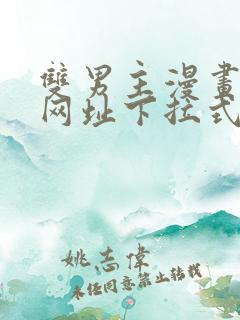 雙男主漫畫
网址下拉式
姚志偉
未经同意禁止转载